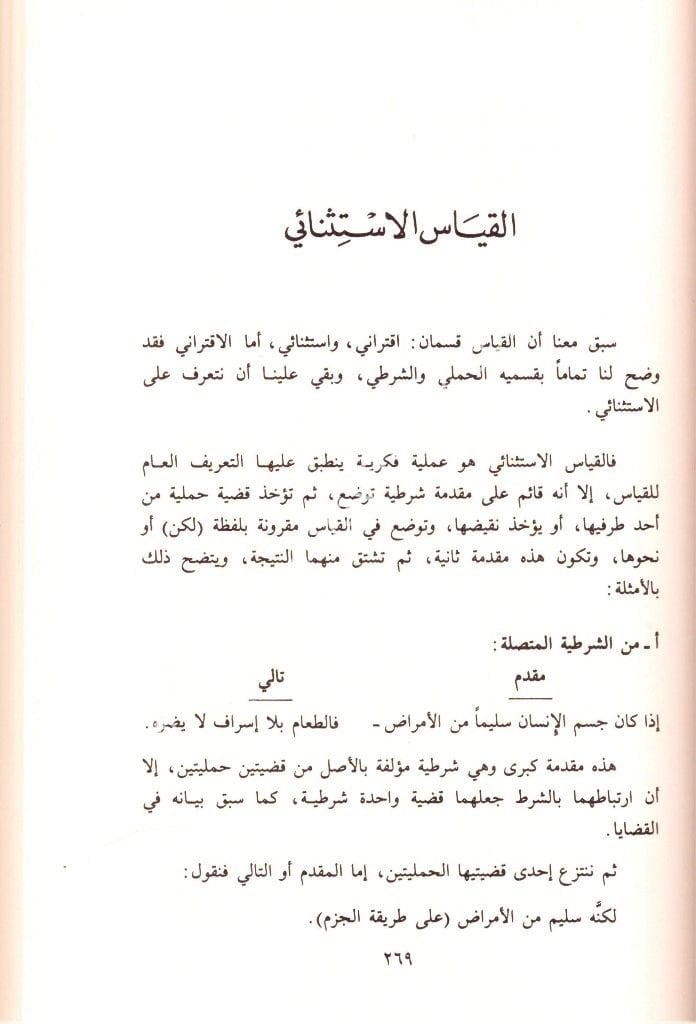 القيَاس الاسْتِثنائي
سبق معنا أن القياس قسمان: اقتراني، واستثنائي، أما الاقتراني فقد
وضح لنا تماماً بقسميه الحملي والشرطي، وبقي علينا أن نتعرف على
الاستثنائي.
فالقياس الاستثنائي هو عملية فكرية ينطبق عليها التعريف العام
للقياس، إلا أنه قائم على مقدمة شرطية توضع، ثم تؤخذ قضية حملية من
أحد طرفيها، أو يؤخذ نقيضها، وتوضع في القياس مقرونة بلفظة (لكن) أو
نحوها، وتكون هذه مقدمة ثانية، ثم تشتق منهما النتيجة، ويتضح ذلك
بالأمثلة:
أ ـ من الشرطية المتصلة:
مقدم تالي
إذا كان جسم الإنسان سليماً من الأمراض ـ فالطعام بلا إسراف لا يضره.
هذه مقدمة كبرى وهي شرطية مؤلفة بالأصل من قضيتين حمليتين، إلا
أن ارتباطهما بالشرط جعلهما قضية واحدة شرطية، كما سبق بيانه في
القضايا.
ثم ننتزع إحدى قضيتيها الحمليتين، إما المقدم أو التالي فنقول:
لكنَّه سليم من الأمراض (على طريقة الجزم).
٢٦٩